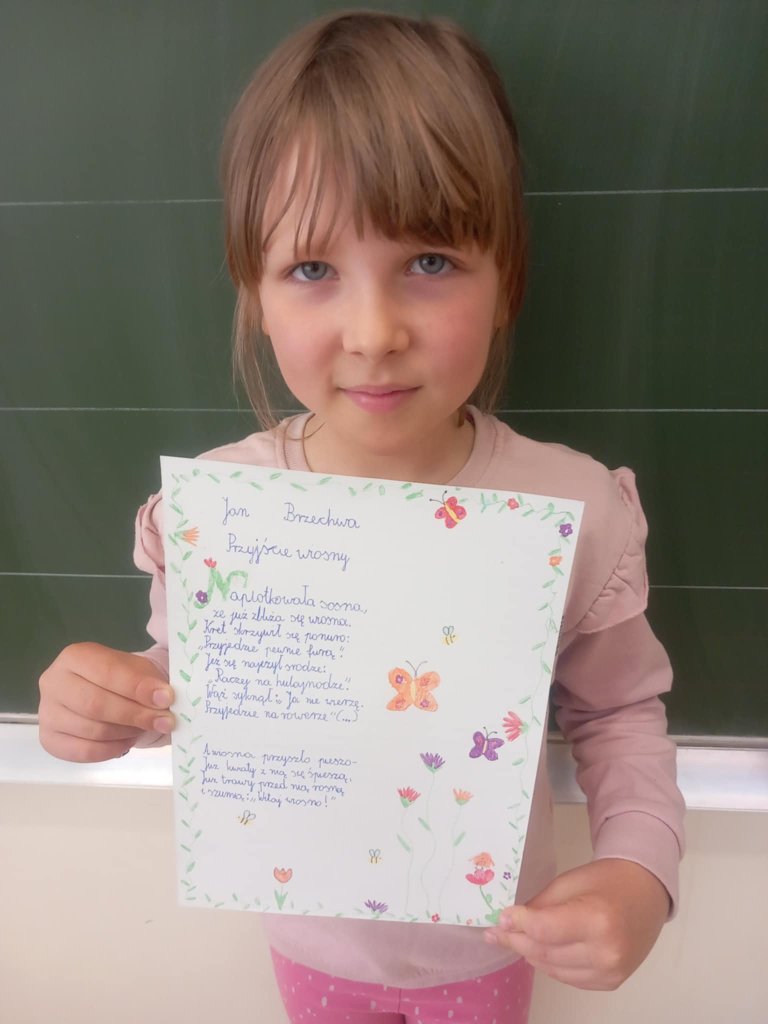 Jan Brzechwa
Przyjście wiosny
Naplotkowała sosna,
że już zbliża się wiosna.
Kret skrzywił się ponuro:
„Przyjedzie pewnie furą”.
Jeż się najeżył srodze:
„Raczej na hulajnodze”.
Wąż syknął: „Ja nie wierzę.
Przyjedzie na rowerze” (...)
A wiosna przyszła pieszo-
Już kwiaty z nią się śpieszą,
Już trawy przed nią rosną
i szumią: „Witaj wiosno!”